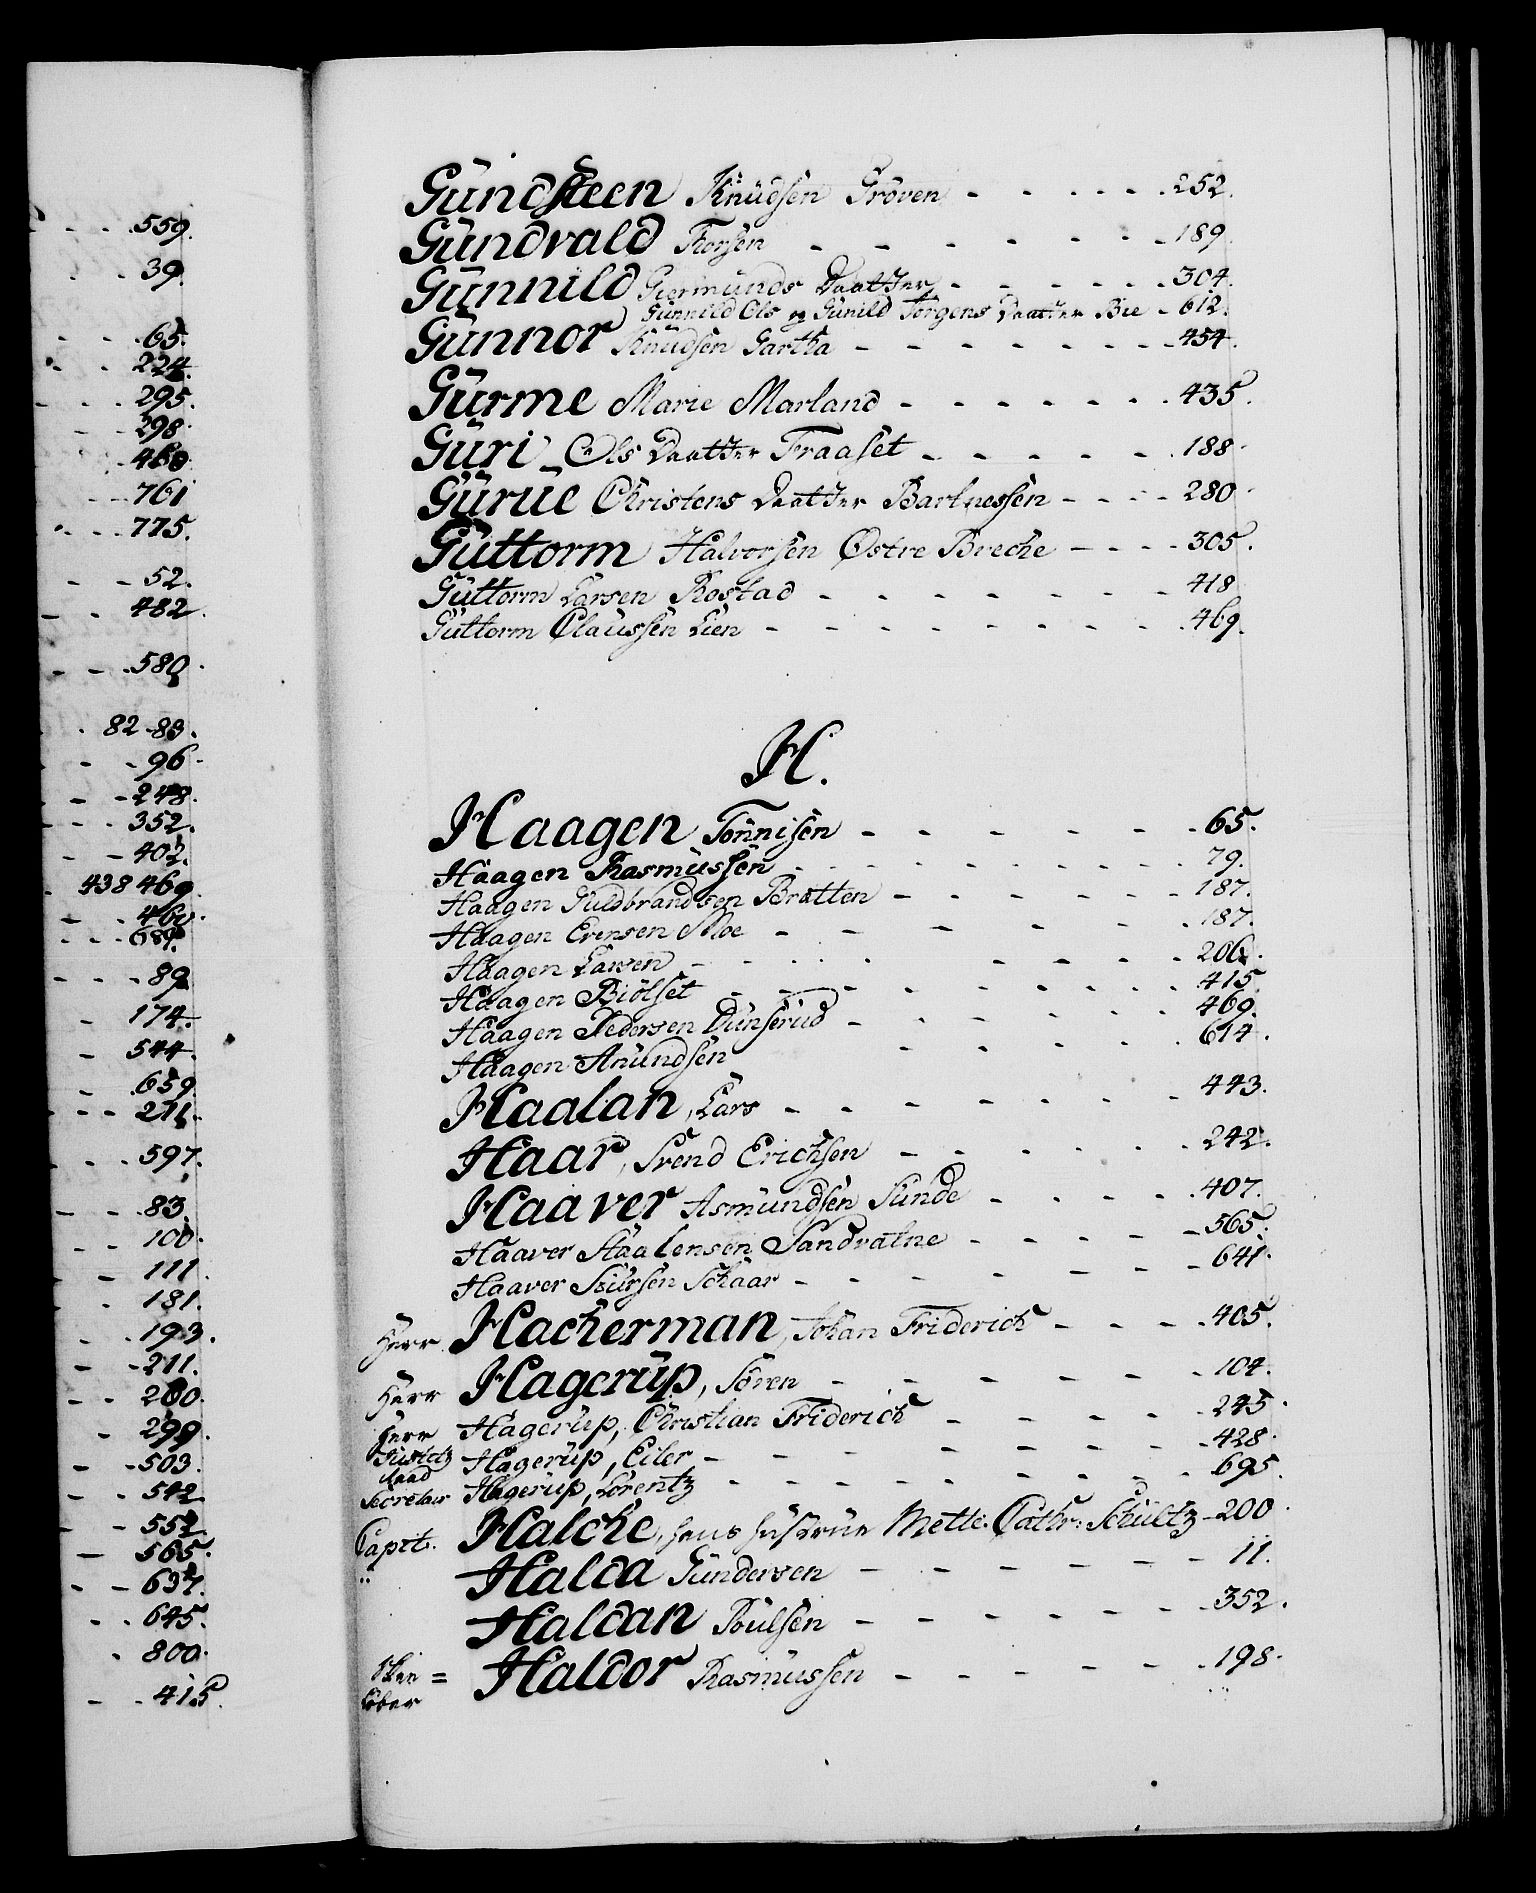 559.
39.
65.
224.
295.
298.
460.
761
775.
52.
482.
580.
82-83.
96
248.
352.
402.
438 469.
460.
689.
89
174.
544.
659
271.
597.
83
100.
111
181.
193.
211.
200.
299.
503.
542
552
565.
637.
645.
800.
415.
Gündsteen Knüdsen Gröven - - - - 252.
Gündvald Thorsen - - - - 189
Günnild Giermünds Daatter - - - - 304.
Günnild Ols og Günild Torgens Daatter Bie - 612.
Günnor Knüdsen Gartha - - - - 454.
Gürme Marie Marland - - - - 435.
Güri Ols Daatter Fraaset - - - - 188.
Gürüe Christens Daatter Bartnessen - - - - 280.
Güttorm Halvorsen Østre Breche - - - - 305.
Güttorm Larsen Rostad - - - - 418
Güttorm Claussen Lien - - - - 469.
H.
Haagen Tönnisen - - - - 65.
Haagen Rasmüssen - - - - 79.
Haagen Guldbrandsen Bratten - - - - 187.
Haagen Evensen Moe - - - - 187.
Haagen Larsen - - - - 206.
Haagen Biölset - - - - 415.
Haagen Pedersen Dünserüd - - - - 469.
Haagen Anündsen - - - - 614.
Haalan, Lars - - - - 443.
Haar, Svend Erichsen - - - - 242.
Haaver Asmündsen Sünde - - - - 407.
Haaver Staalensen Sandvatne - - - - 565.
Haaver Siürsen Schaar - - - - 641.
Herr Hackerman, Johan Friderich - - - - 405.
Herr Hagerüp, Sören - - - - 104.
Herr Hagerüp, Christian Friderich - - - - 245.
Justitz Raad Hagerüp, Eiler - - - - 428.
Secretair Hagerüp, Lorentz - - - - 695.
Capit. Halche, hans hustrue Mette Cathr: Schültz - 200
Halda Gündersen - - - - 11.
Haldan Poülsen - - - - 352.
Skie = Löber Haldor Rasmüssen - - - - 198.